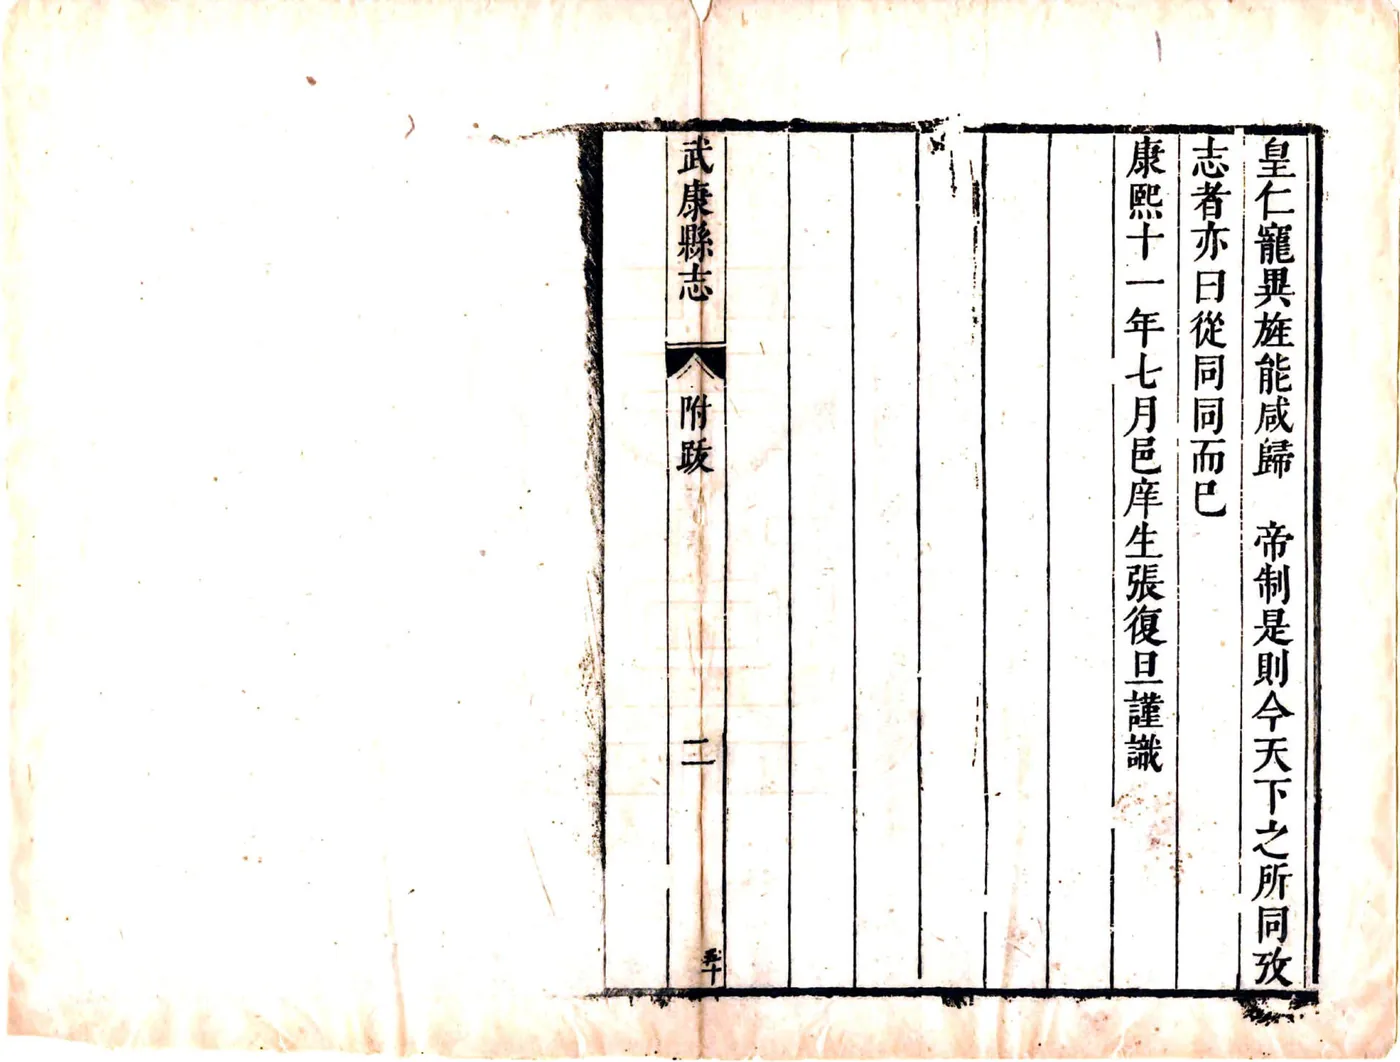 皇仁寵異旌能咸歸　帝制是則今天下之所同攷
志者亦曰從同同而已
康熙十一年七月邑庠生張復旦謹識
武康縣志
附跋
二